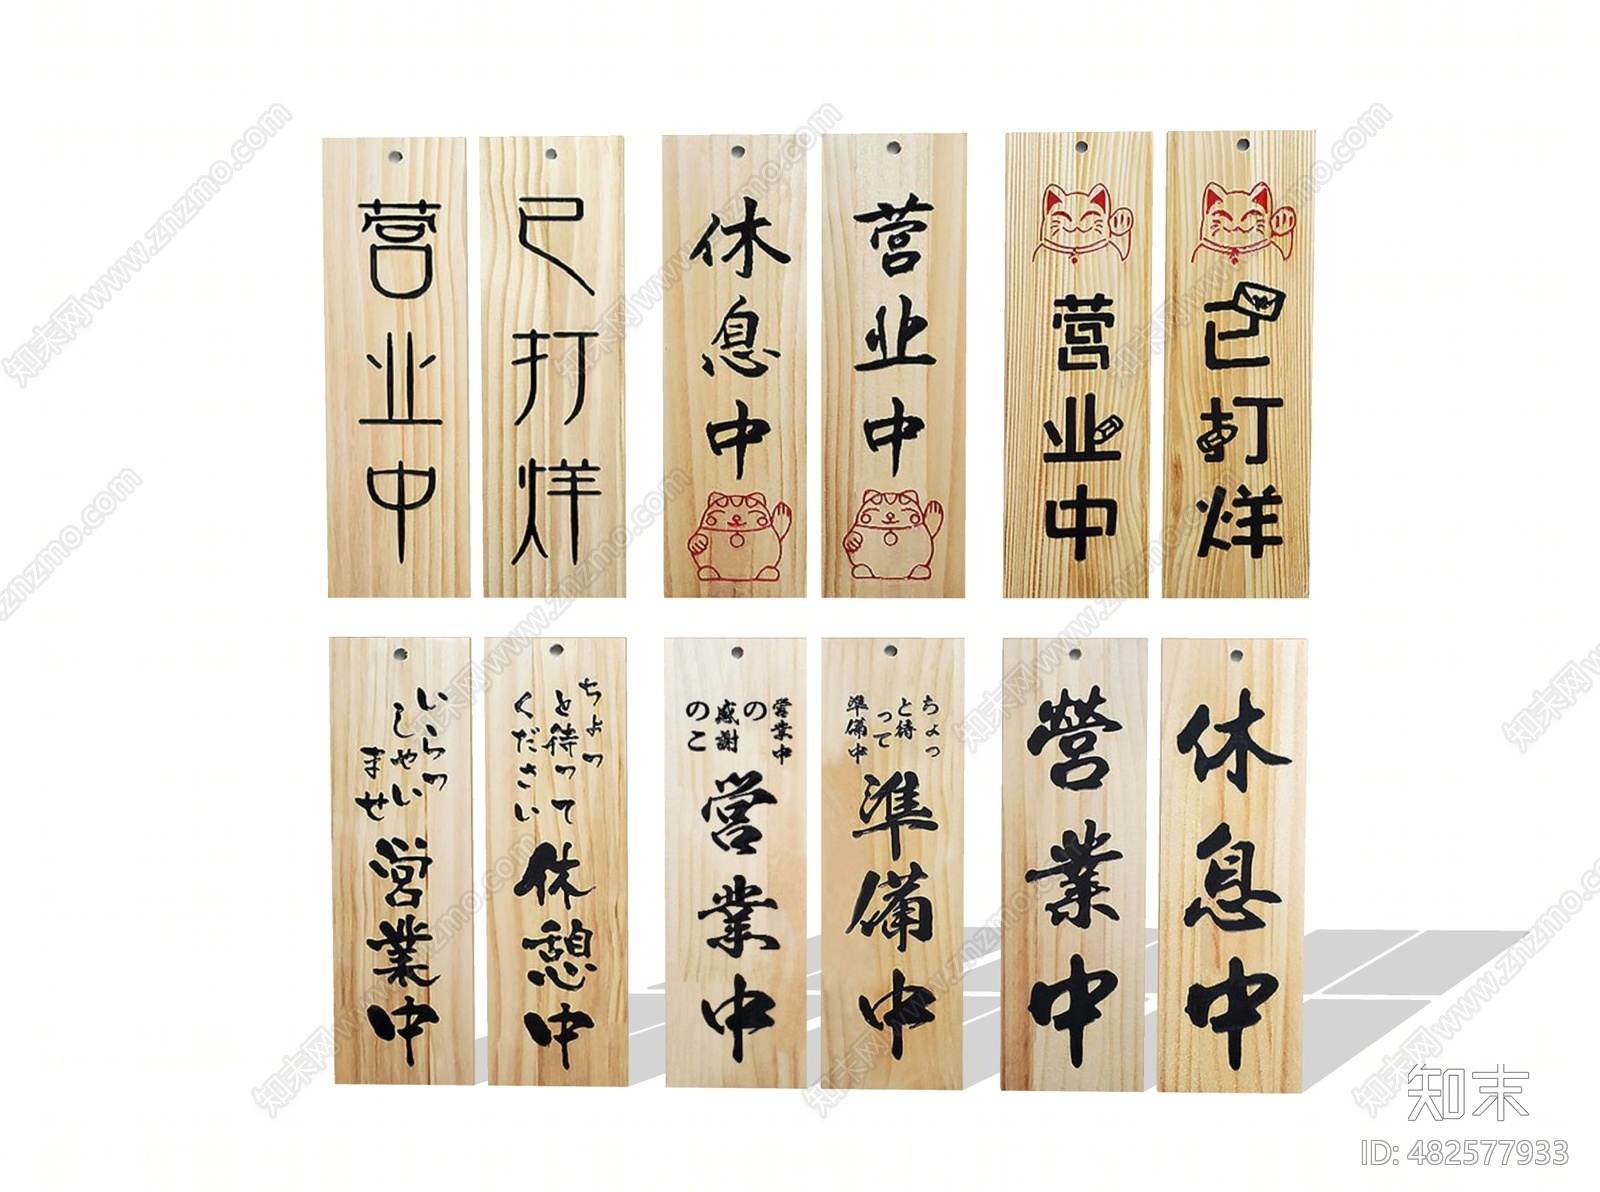 营业中
已打烊
休息中
营业中
营业中
已打烊
いらっ
しゃい
ませ
営業中
ちょっ
と待って
ください
休憩中
営業中
の
感謝
のこ
営業中
ちょっ
と待
って
準備中
準備中
營業中
休息中
知末
ID: 482577933
知末网www.znzmo.com